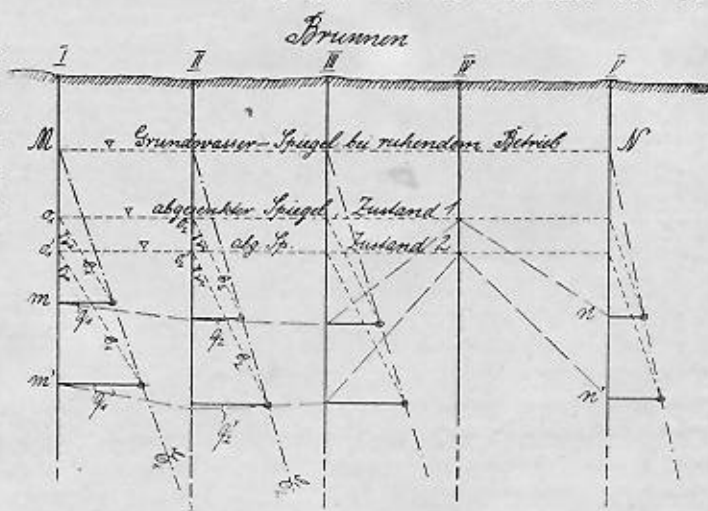 Brunnen
I II III IV V
M Grundwasser-Spiegel bei ruhendem Betrieb N
abgesenkter Spiegel, Zustand 1
abg. Sp. Zustand 2
m q₁ q₂ n
m' q₁' q₂' n'